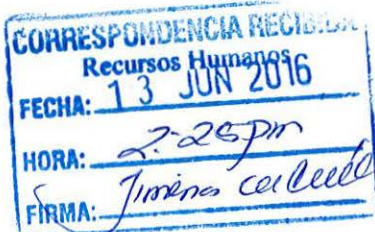 CORRESPONDENCIA RECIBIDA
Recursos Humanos
FECHA: 13 JUN 2016
HORA: 2:25pm
FIRMA: Jimena